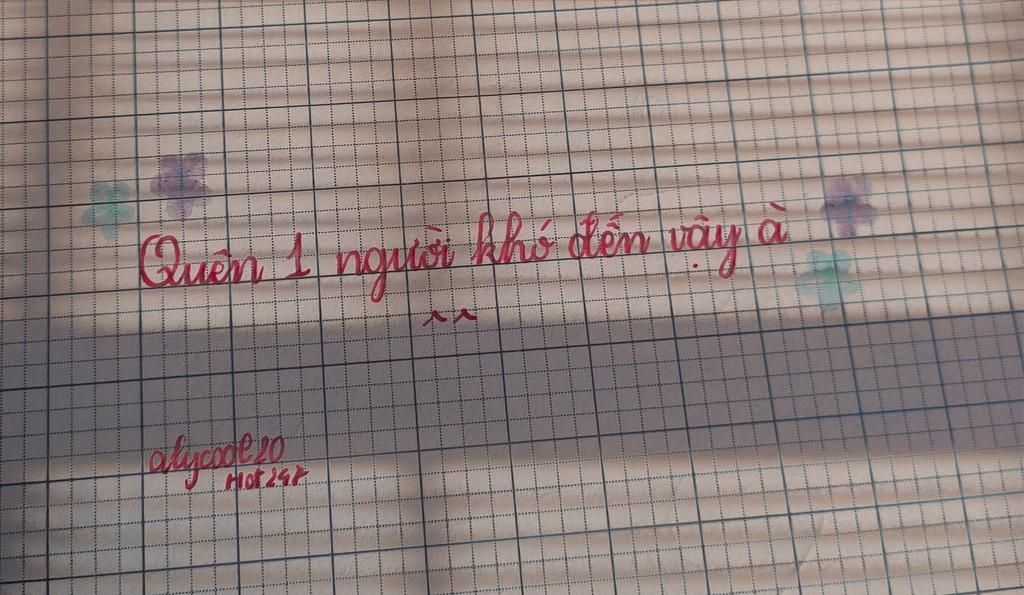 Quên 1 người khó đến vậy à
^^
alycool20
Hot247